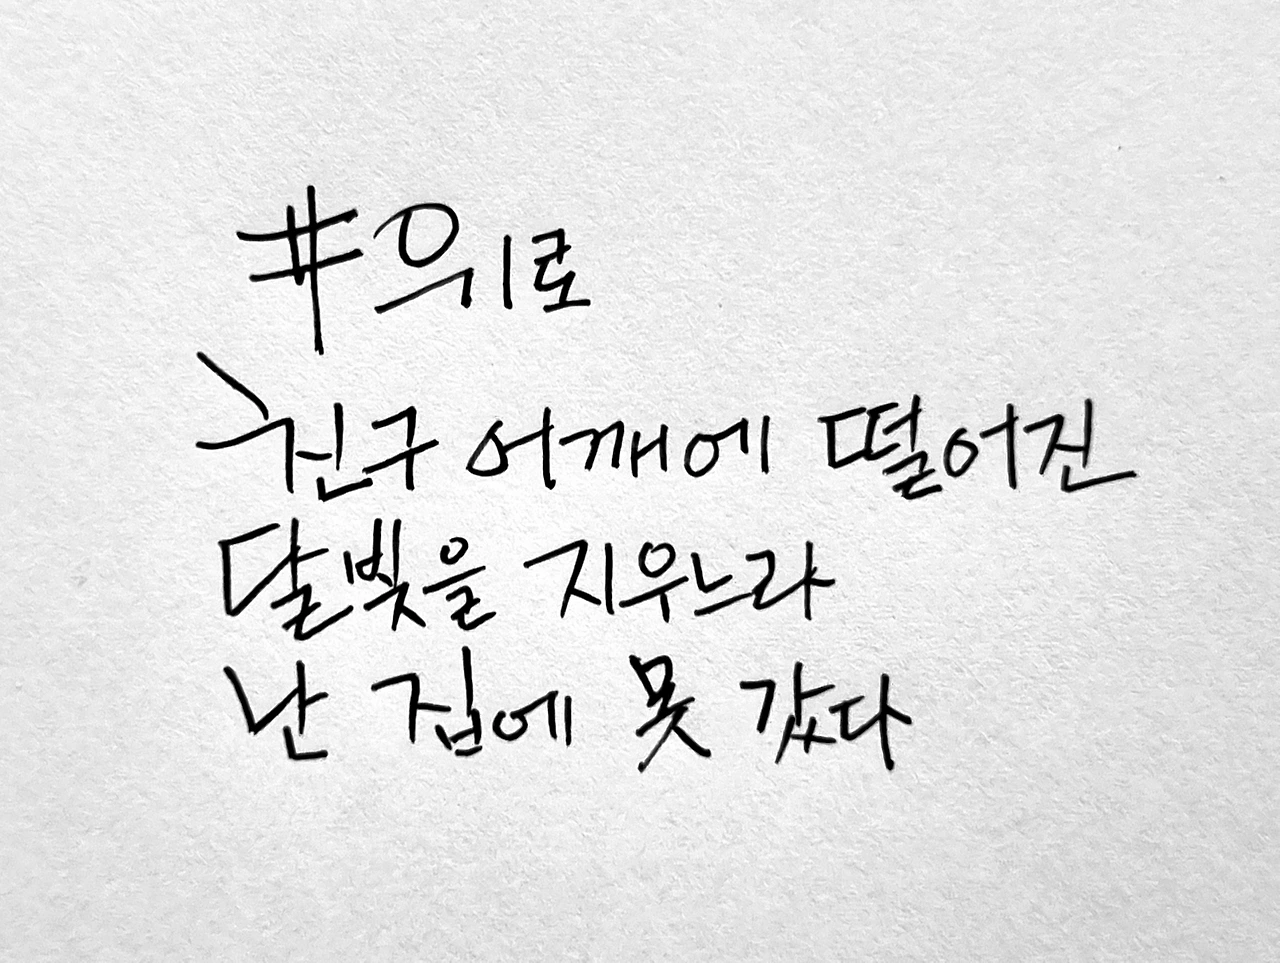 #위로
친구 어깨에 떨어진
달빛을 지우느라
난 집에 못 갔다